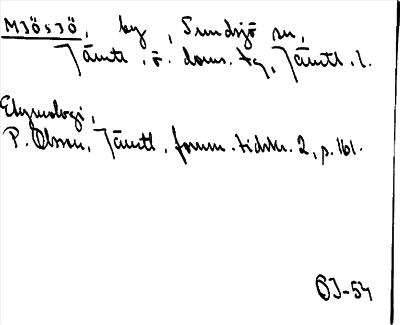 MJÖSJÖ, by, Sundsjö sn,
Jämtl. ö. doms. tg, Jämtl. l.
Etymologi,
P. Olsson, Jämtl. fornm. tidskr. 2, p. 161.
BJ-54